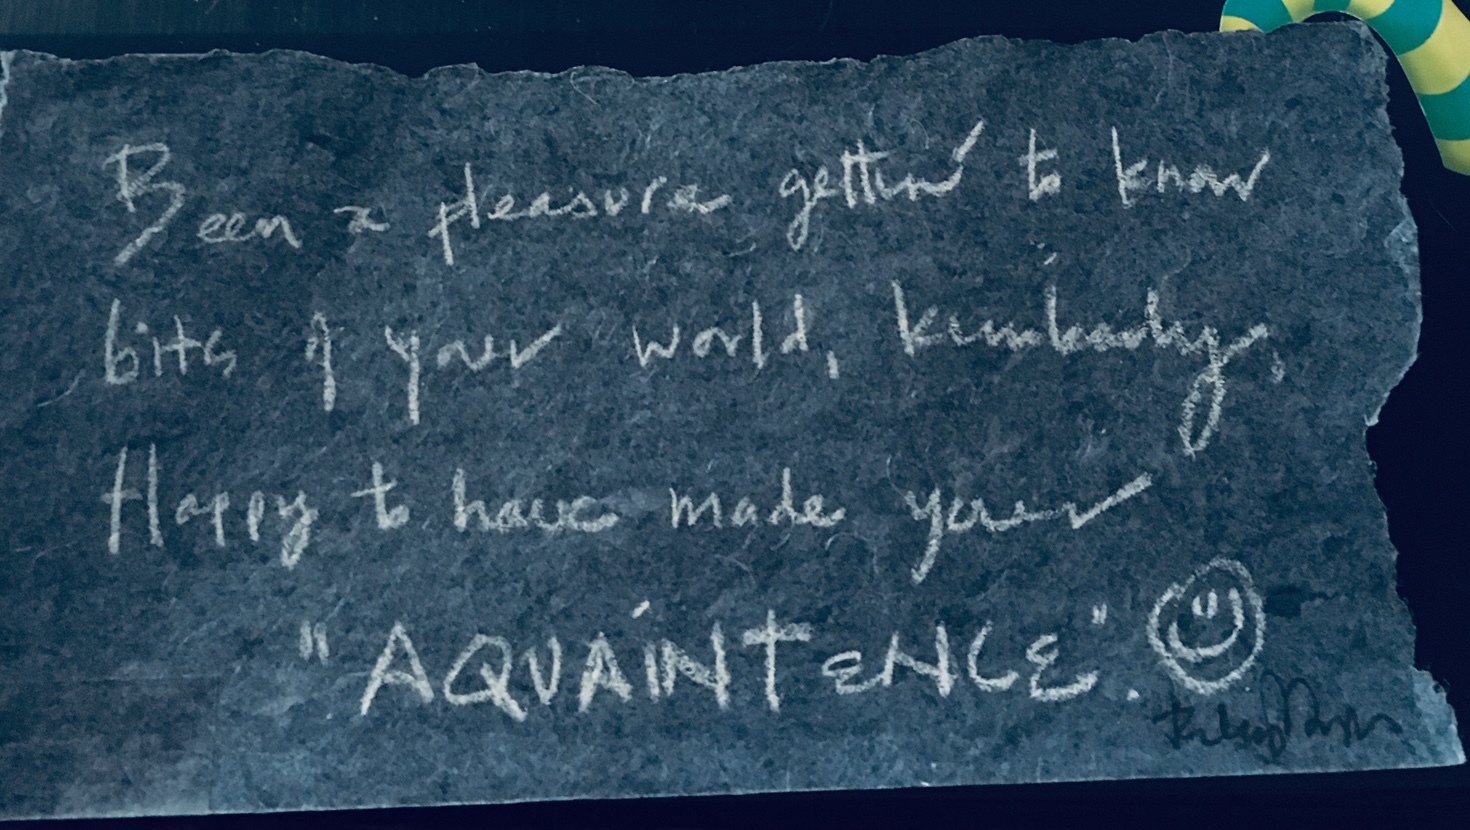 Been a pleasure gettin' to know
bits of your world, kimberly,
Happy to have made your
"AQUAINTENCE".